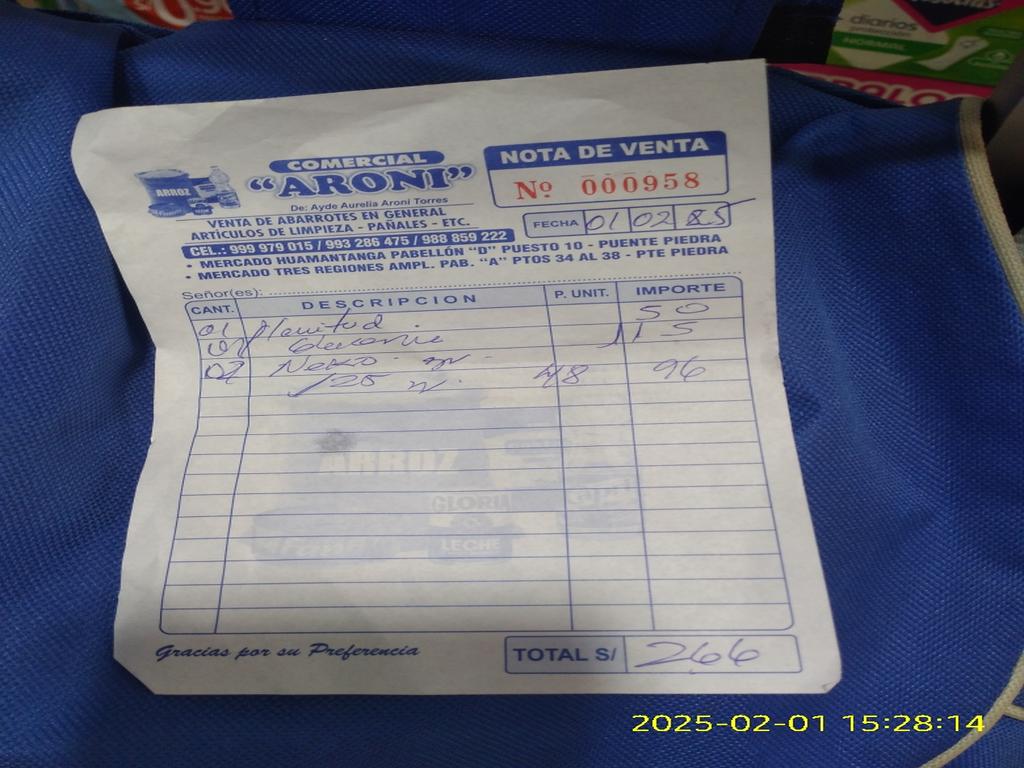 diarios
NORMAL
COMERCIAL
"ARONI"
De: Ayde Aurelia Aroni Torres
VENTA DE ABARROTES EN GENERAL
ARTÍCULOS DE LIMPIEZA - PAÑALES - ETC.
CEL.: 999 979 015 / 993 286 475 / 988 859 222
• MERCADO HUAMANTANGA PABELLÓN "D" PUESTO 10 - PUENTE PIEDRA
• MERCADO TRES REGIONES AMPL. PAB. "A" PTOS 34 AL 38 - PTE PIEDRA
ARROZ
NOTA DE VENTA
Nº 000958
FECHA 01 02 25
Señor(es):
CANT. DESCRIPCION P. UNIT. IMPORTE
01 50
01 115
02 48 96
125
ARROZ
GLORIA
LECHE
Gracias por su Preferencia
TOTAL S/ 266
2025-02-01 15:28:14